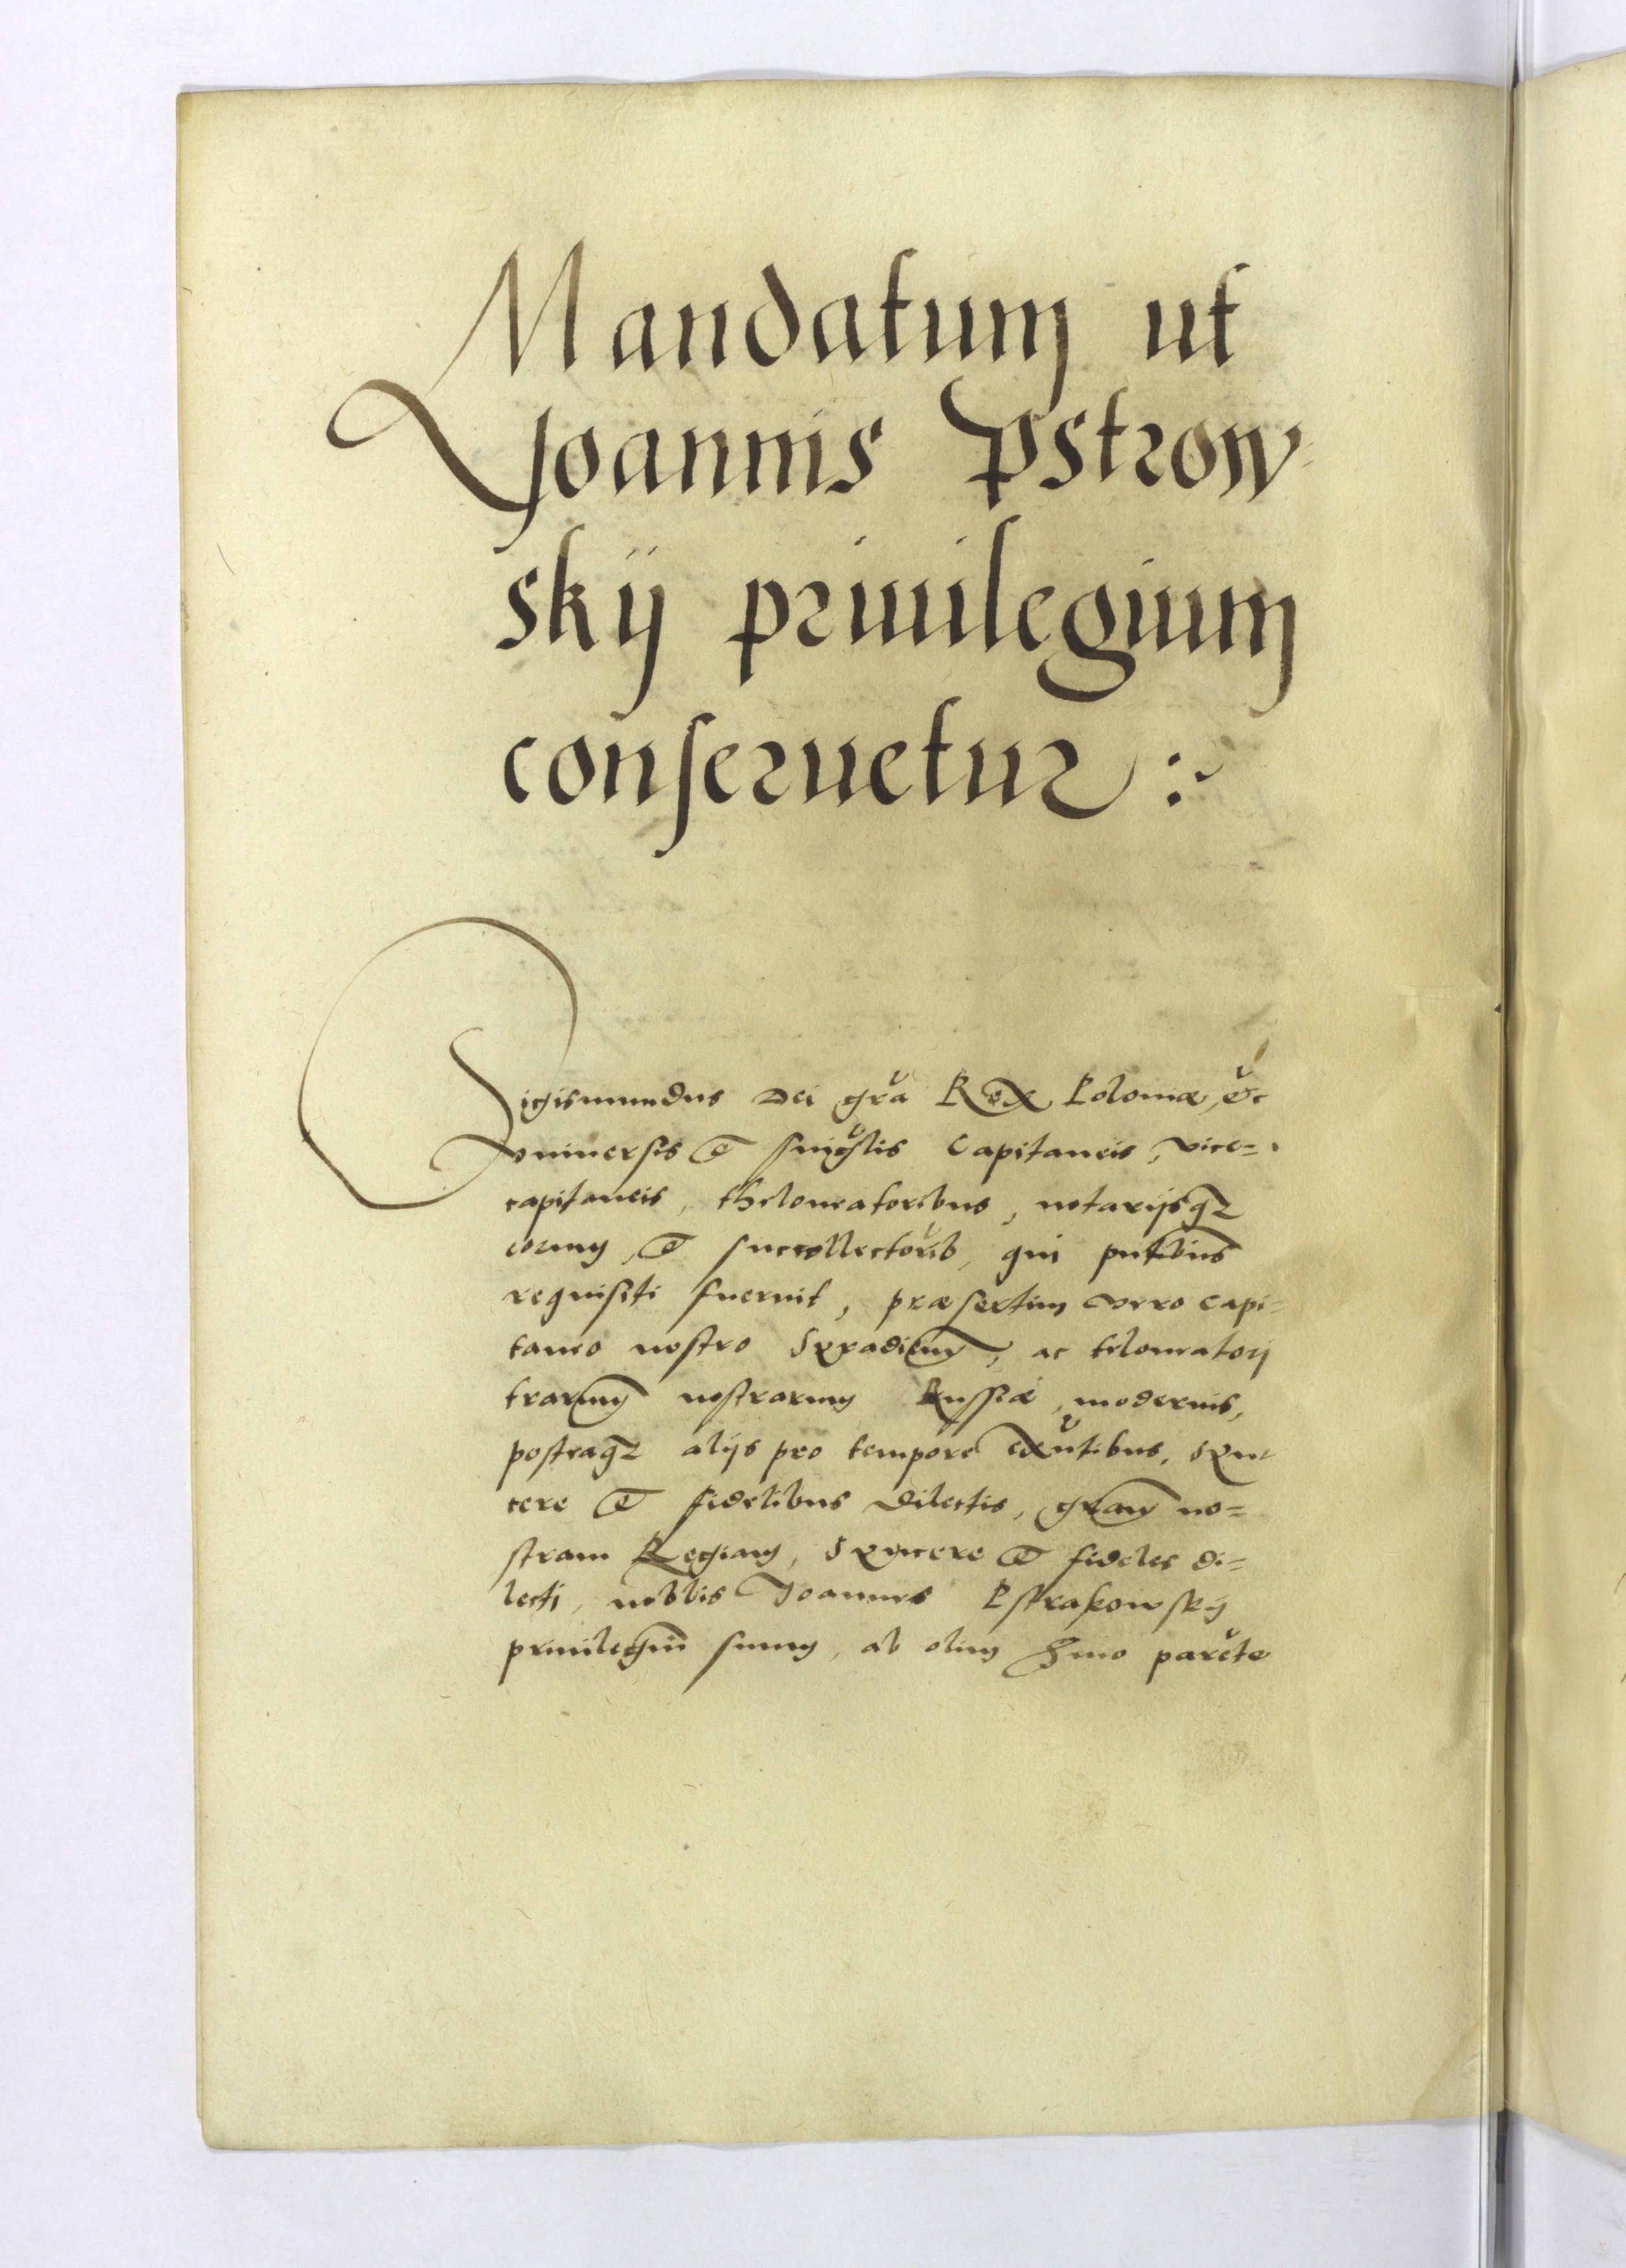 Mandatum ut
Joannis Pstrow-
skij priuilegium
conseruetur :~
Sigismundus Dei gra Rex Poloniæ, &c
vniuersis & singulis Capitaneis, vice=
capitaneis, theloneatoribus, notarijsq3
eorum, & succollectorib, qui pntibus
requisiti fuerint, præsertim vero Capi=
taneo nostro Syradien, ac teloneatorj
trarum nostrarum Russiæ, modernis,
posteaq3 alijs pro tempore exntibus, syn
cere & fidelibus dilectis, gram no=
stram Regiam, Syncere & fideles di=
lecti, nobilis Joannes Pstrakowskj
priuilegiu suum, ab olim suo parete